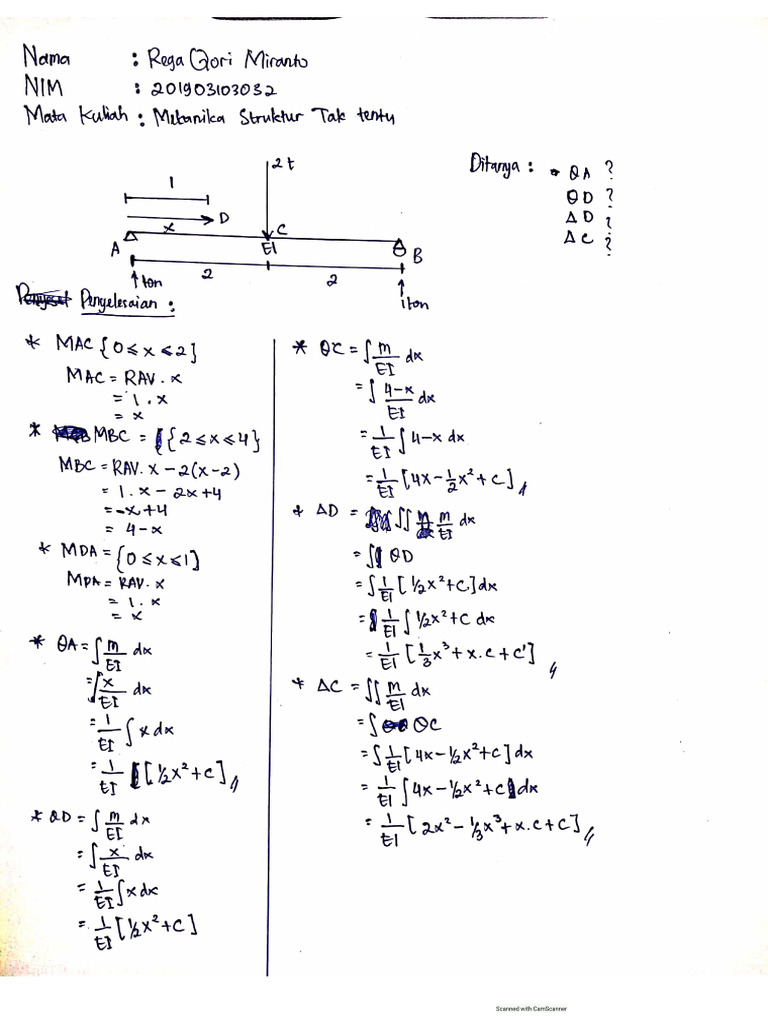 Nama : Rega Qori Miranto
NIM : 201903103032
Mata Kuliah : Mekanika Struktur Tak tentu
Ditanya : * θA ?
θD ?
ΔD ?
ΔC ?
2 t
1
D
x
C
A
EI
B
2
2
1 ton
1 ton
Penyelesaian :
* MAC {0 ≤ x ≤ 2}
MAC = RAV . x
= 1 . x
= x
* MBC = {2 ≤ x ≤ 4}
MBC = RAV. x - 2(x-2)
= 1. x - 2x+4
= -x+4
= 4-x
* MDA = {0 ≤ x ≤ 1}
MDA = RAV. x
= 1. x
= x
* θA = ∫ m/EI dx
= ∫ x/EI dx
= 1/EI ∫ x dx
= 1/EI [½x² + C] //
* θD = ∫ m/EI dx
= ∫ x/EI dx
= 1/EI ∫ x dx
= 1/EI [½x² + C]
* θC = ∫ m/EI dx
= ∫ 4-x/EI dx
= 1/EI ∫ 4-x dx
= 1/EI [4x - ½x² + C] //
* ΔD = ∫∫ m/EI dx
= ∫ θD
= ∫ 1/EI [½x² + C] dx
= 1/EI ∫ ½x² + C dx
= 1/EI [⅓x³ + x.C + C'] //
* ΔC = ∫∫ m/EI dx
= ∫ θC
= ∫ 1/EI [4x - ½x² + C] dx
= 1/EI ∫ 4x - ½x² + C dx
= 1/EI [2x² - ⅓x³ + x.C + C] //
Scanned with CamScanner